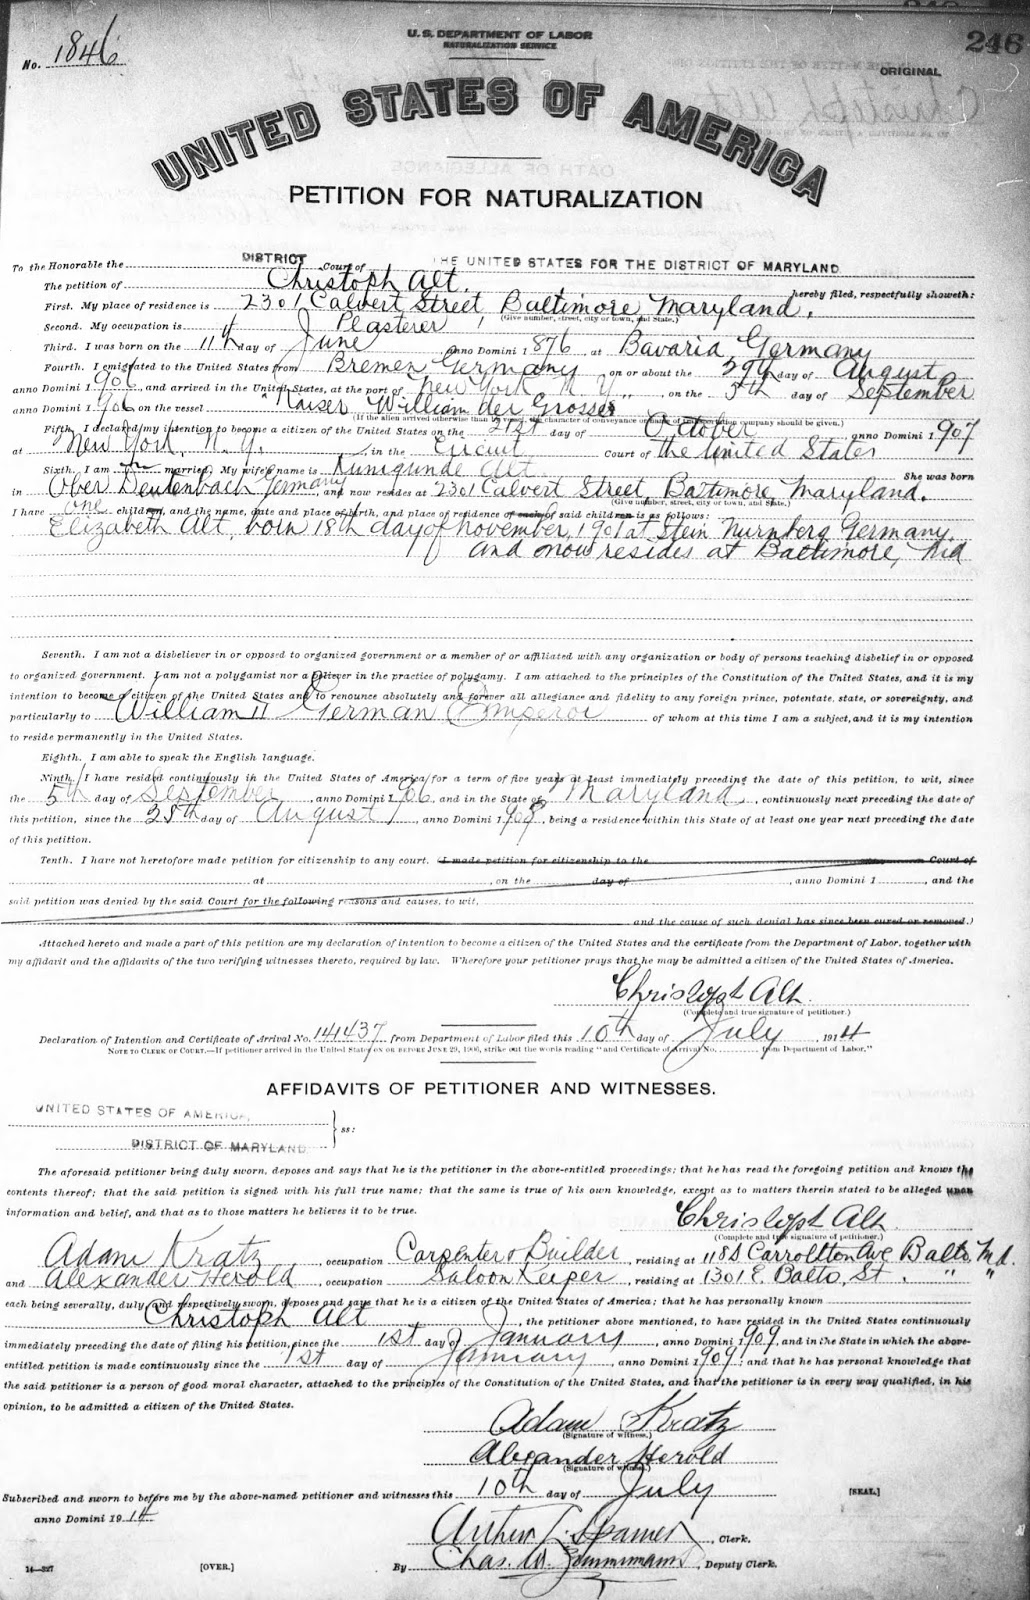 U. S. DEPARTMENT OF LABOR
NATURALIZATION SERVICE
No. 1846
246
ORIGINAL
UNITED STATES OF AMERICA
PETITION FOR NATURALIZATION
To the Honorable the DISTRICT Court of THE UNITED STATES FOR THE DISTRICT OF MARYLAND
The petition of Christoph Alt. hereby filed, respectfully showeth:
First. My place of residence is 2301 Calvert Street, Baltimore, Maryland.
(Give number, street, city or town, and State.)
Second. My occupation is Plasterer
Third. I was born on the 11th day of June anno Domini 1876, at Bavaria, Germany
Fourth. I emigrated to the United States from Bremen Germany, on or about the 29th day of August
anno Domini 1906, and arrived in the United States, at the port of New York N. Y., on the 5th day of September
anno Domini 1906 on the vessel "Kaiser William der Grosser"
(If the alien arrived otherwise than by vessel, the character of conveyance or name of transportation company should be given.)
Fifth. I declared my intention to become a citizen of the United States on the 21st day of October anno Domini 1907
at New York, N. Y. in the Circuit Court of the United States
Sixth. I am married. My wife's name is Kunigunde Alt. She was born
in Ober Deutenbach Germany, and now resides at 2301 Calvert Street, Baltimore Maryland.
(Give number, street, city or town, and State.)
I have one children, and the name, date and place of birth, and place of residence of each of said children is as follows:
Elizabeth Alt, born 18th day of November, 1901 at Stein Nurnberg Germany.
and now resides at Baltimore, Md
Seventh. I am not a disbeliever in or opposed to organized government or a member of or affiliated with any organization or body of persons teaching disbelief in or opposed
to organized government. I am not a polygamist nor a believer in the practice of polygamy. I am attached to the principles of the Constitution of the United States, and it is my
intention to become a citizen of the United States and to renounce absolutely and forever all allegiance and fidelity to any foreign prince, potentate, state, or sovereignty, and
particularly to William II German Emperor of whom at this time I am a subject, and it is my intention
to reside permanently in the United States.
Eighth. I am able to speak the English language.
Ninth. I have resided continuously in the United States of America for a term of five years at least immediately preceding the date of this petition, to wit, since
the 5th day of September, anno Domini 1906, and in the State of Maryland, continuously next preceding the date of
this petition, since the 25th day of August, anno Domini 1908, being a residence within this State of at least one year next preceding the date
of this petition.
Tenth. I have not heretofore made petition for citizenship to any court. (I made petition for citizenship to the Court of
at , on the day of , anno Domini 1 , and the
said petition was denied by the said Court for the following reasons and causes, to wit,
and the cause of such denial has since been cured or removed.)
Attached hereto and made a part of this petition are my declaration of intention to become a citizen of the United States and the certificate from the Department of Labor, together with
my affidavit and the affidavits of the two verifying witnesses thereto, required by law. Wherefore your petitioner prays that he may be admitted a citizen of the United States of America.
Christoph Alt.
(Complete and true signature of petitioner.)
Declaration of Intention and Certificate of Arrival No. 141437, from Department of Labor filed this 10th day of July, 1914
NOTE TO CLERK OF COURT.—If petitioner arrived in the United States on or BEFORE JUNE 29, 1906, strike out the words reading "and Certificate of Arrival No. from Department of Labor."
AFFIDAVITS OF PETITIONER AND WITNESSES.
UNITED STATES OF AMERICA,
DISTRICT OF MARYLAND } ss:
The aforesaid petitioner being duly sworn, deposes and says that he is the petitioner in the above-entitled proceedings; that he has read the foregoing petition and knows the
contents thereof; that the said petition is signed with his full true name; that the same is true of his own knowledge, except as to matters therein stated to be alleged upon
information and belief, and that as to those matters he believes it to be true.
Christoph Alt.
(Complete and true signature of petitioner.)
Adam Kratz, occupation Carpenter & Builder, residing at 118 S Carrollton Ave Balto. Md.
and Alexander Herold, occupation Saloon Keeper, residing at 1301 E. Balto. St. " "
each being severally, duly, and respectively sworn, deposes and says that he is a citizen of the United States of America; that he has personally known
Christoph Alt, the petitioner above mentioned, to have resided in the United States continuously
immediately preceding the date of filing his petition, since the 1st day of January, anno Domini 1909, and in the State in which the above-
entitled petition is made continuously since the 1st day of January, anno Domini 1909; and that he has personal knowledge that
the said petitioner is a person of good moral character, attached to the principles of the Constitution of the United States, and that the petitioner is in every way qualified, in his
opinion, to be admitted a citizen of the United States.
Adam Kratz
(Signature of witness.)
Alexander Herold
(Signature of witness.)
Subscribed and sworn to before me by the above-named petitioner and witnesses this 10th day of July [SEAL.]
anno Domini 1914
Arthur L. Spamer, Clerk.
By Chas. W. Zimmermann, Deputy Clerk.
14—327
[OVER.]